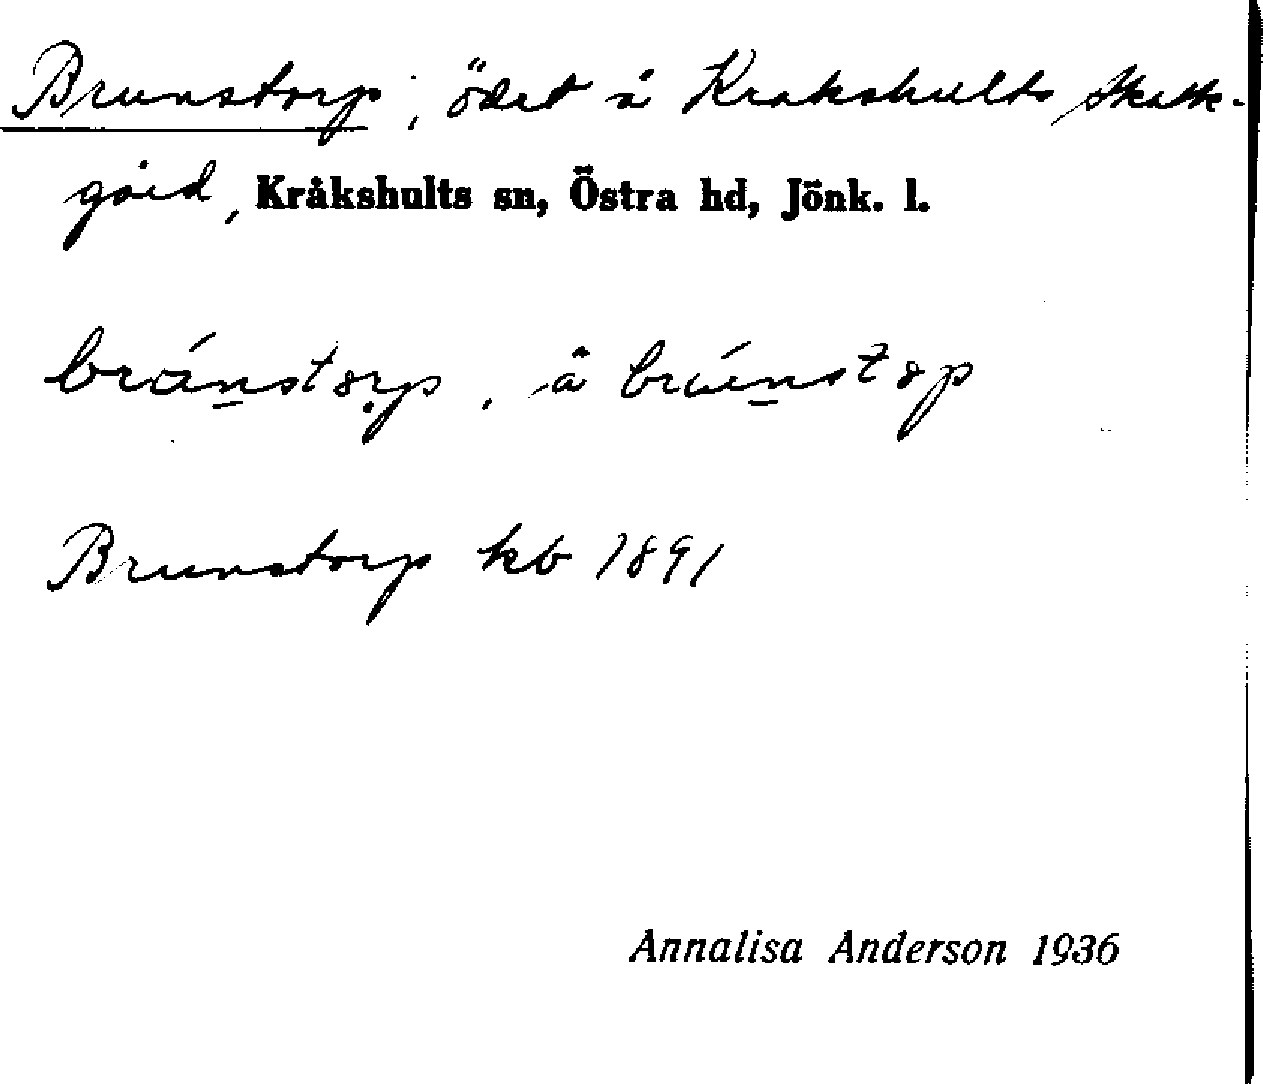 Brunstorp, ödet å Krakshults skatte-
gård, Kråkshults sn, Östra hd, Jönk. l.
bránstorp, å brúnstop
Brunstorp kb 1891
Annalisa Anderson 1936